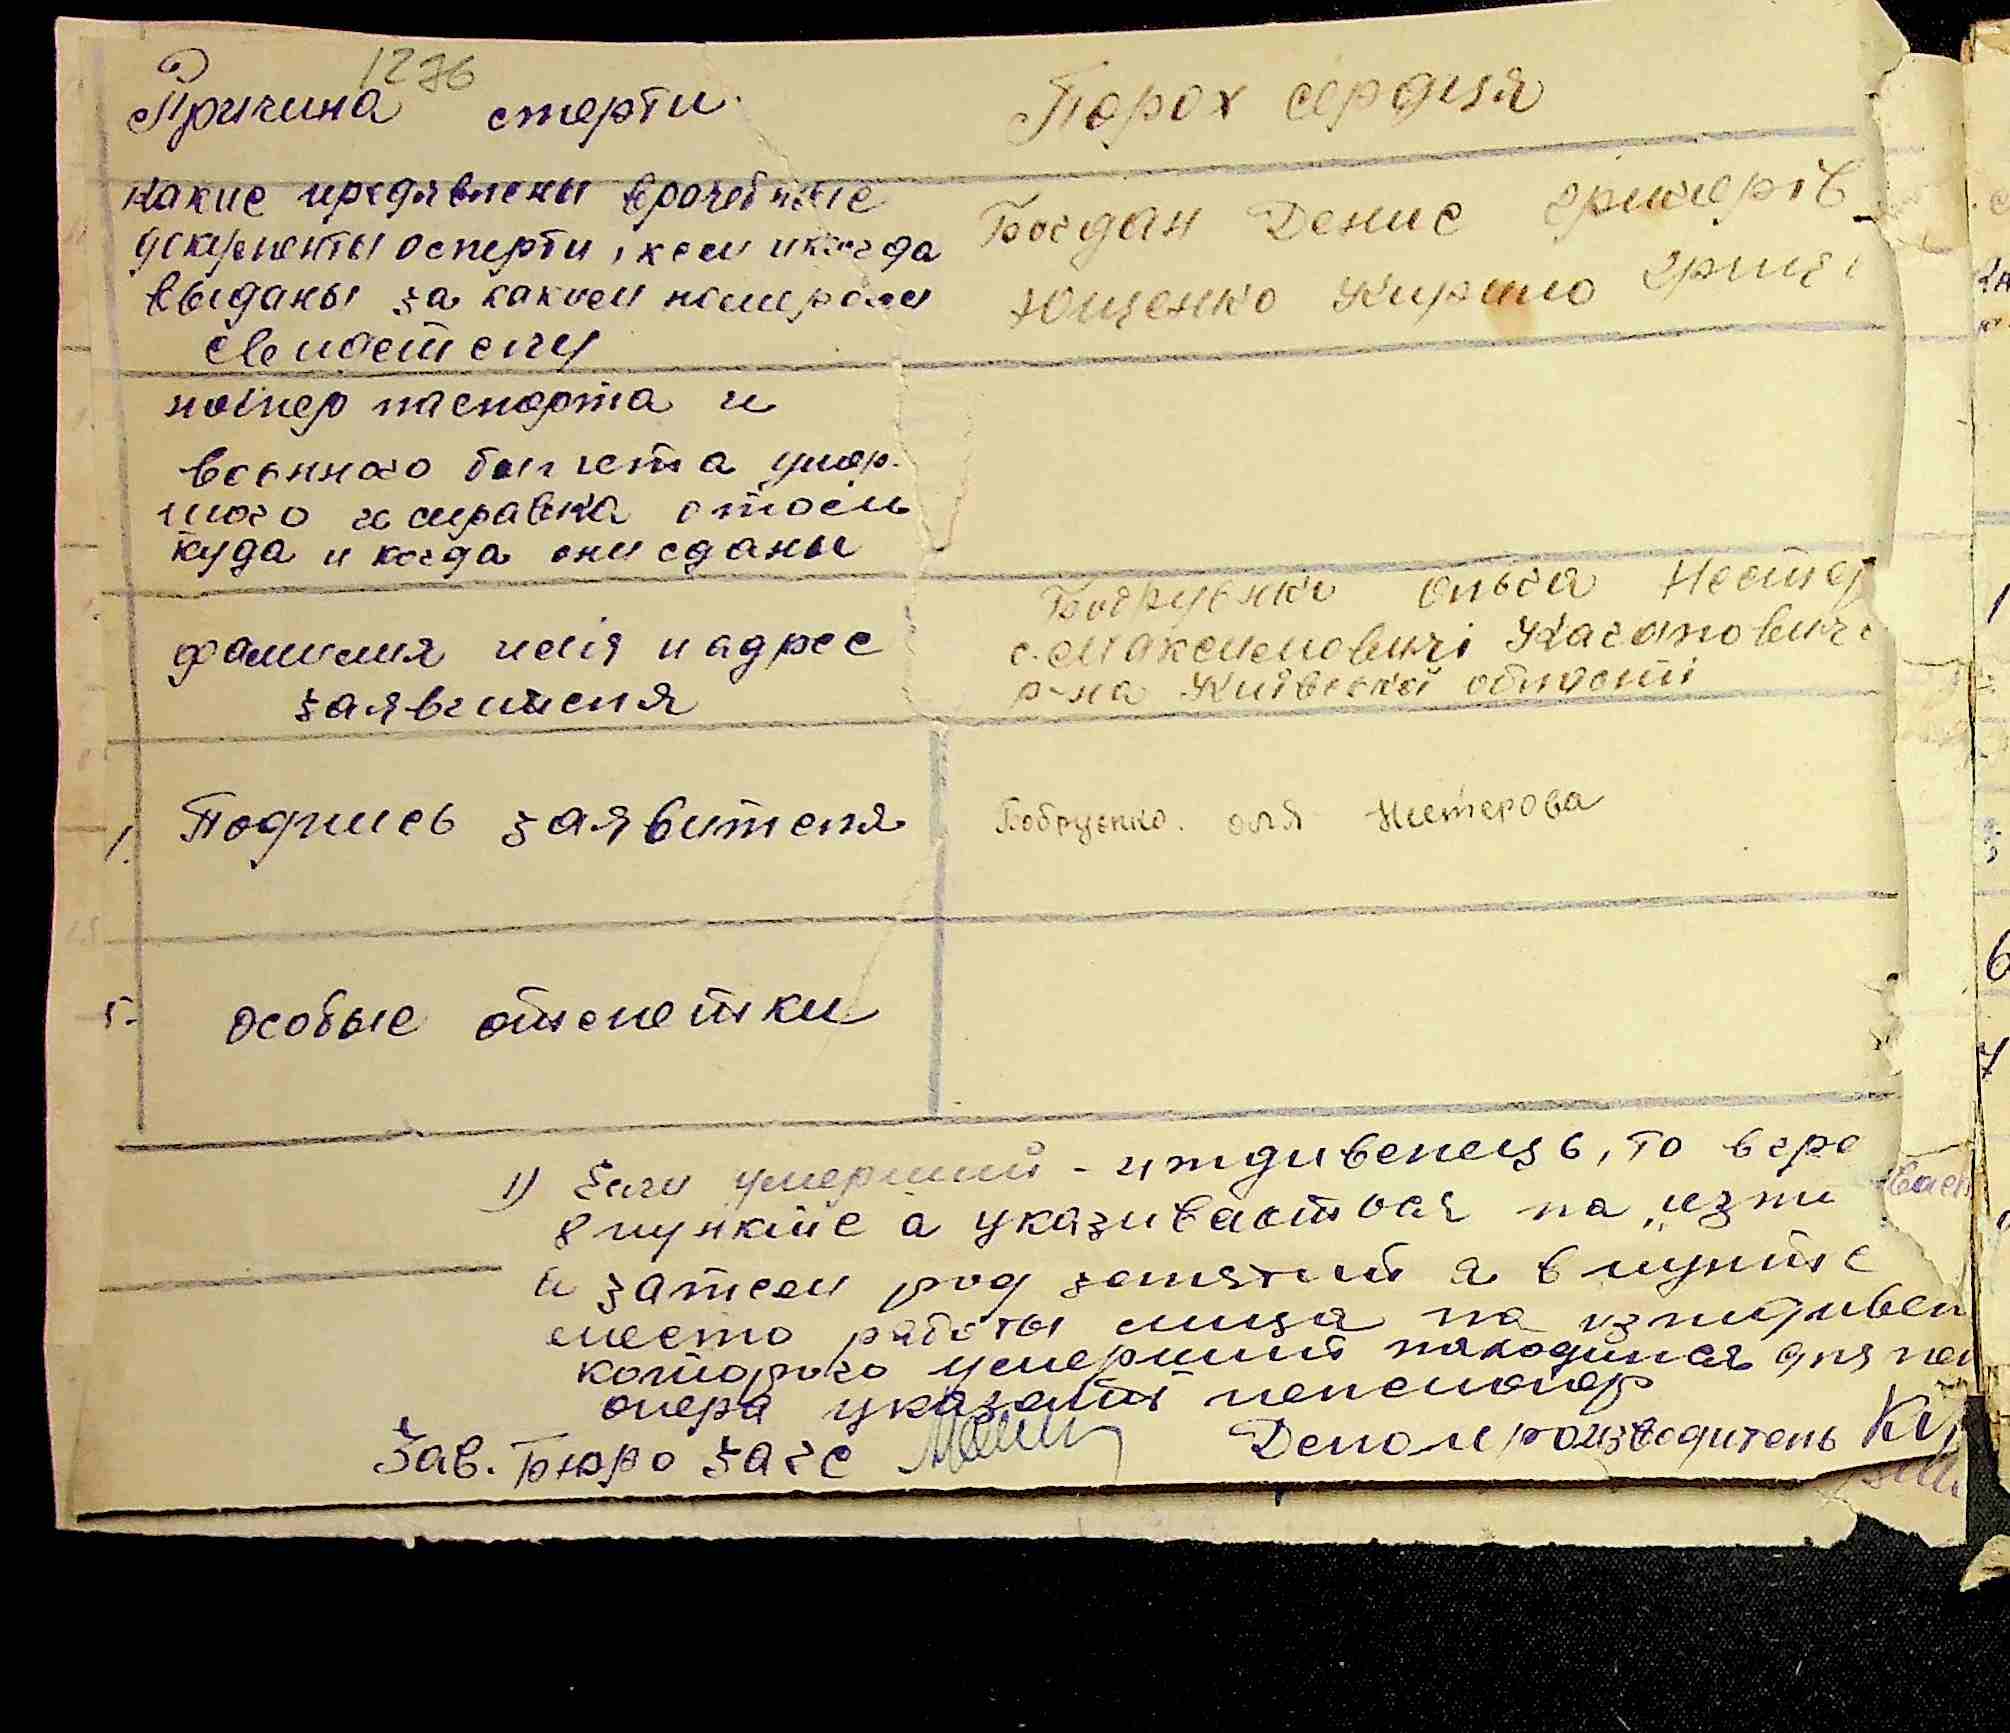 1276
Причина смерти. Порох сердця
какие предявлены врочебные
документы осмерти, кем икогда
выданы за каким номиром
Свидетелу
Богдан Денис
Ющенко Кирило
номер паспорта и
военного билета умер.
шого и справка
куда и когда они сданы
фамилия имія и адрес
заявителя
Бобруенко Ольга Нестер
с. Максимовичі Кагановичс
р-на Київської області
1. Подпись заявителя Бобруенко. оля Нистерова
5. особые отметки
1) Если умерший - иждивенець, то вгра
впункте а указиваеться на „изти
и затем род занятий а в пункте
место работы лица на изждивен
которого умерший находился для пен
онера указать пенсионер
Зав. Бюро Загс Делопроизводитель